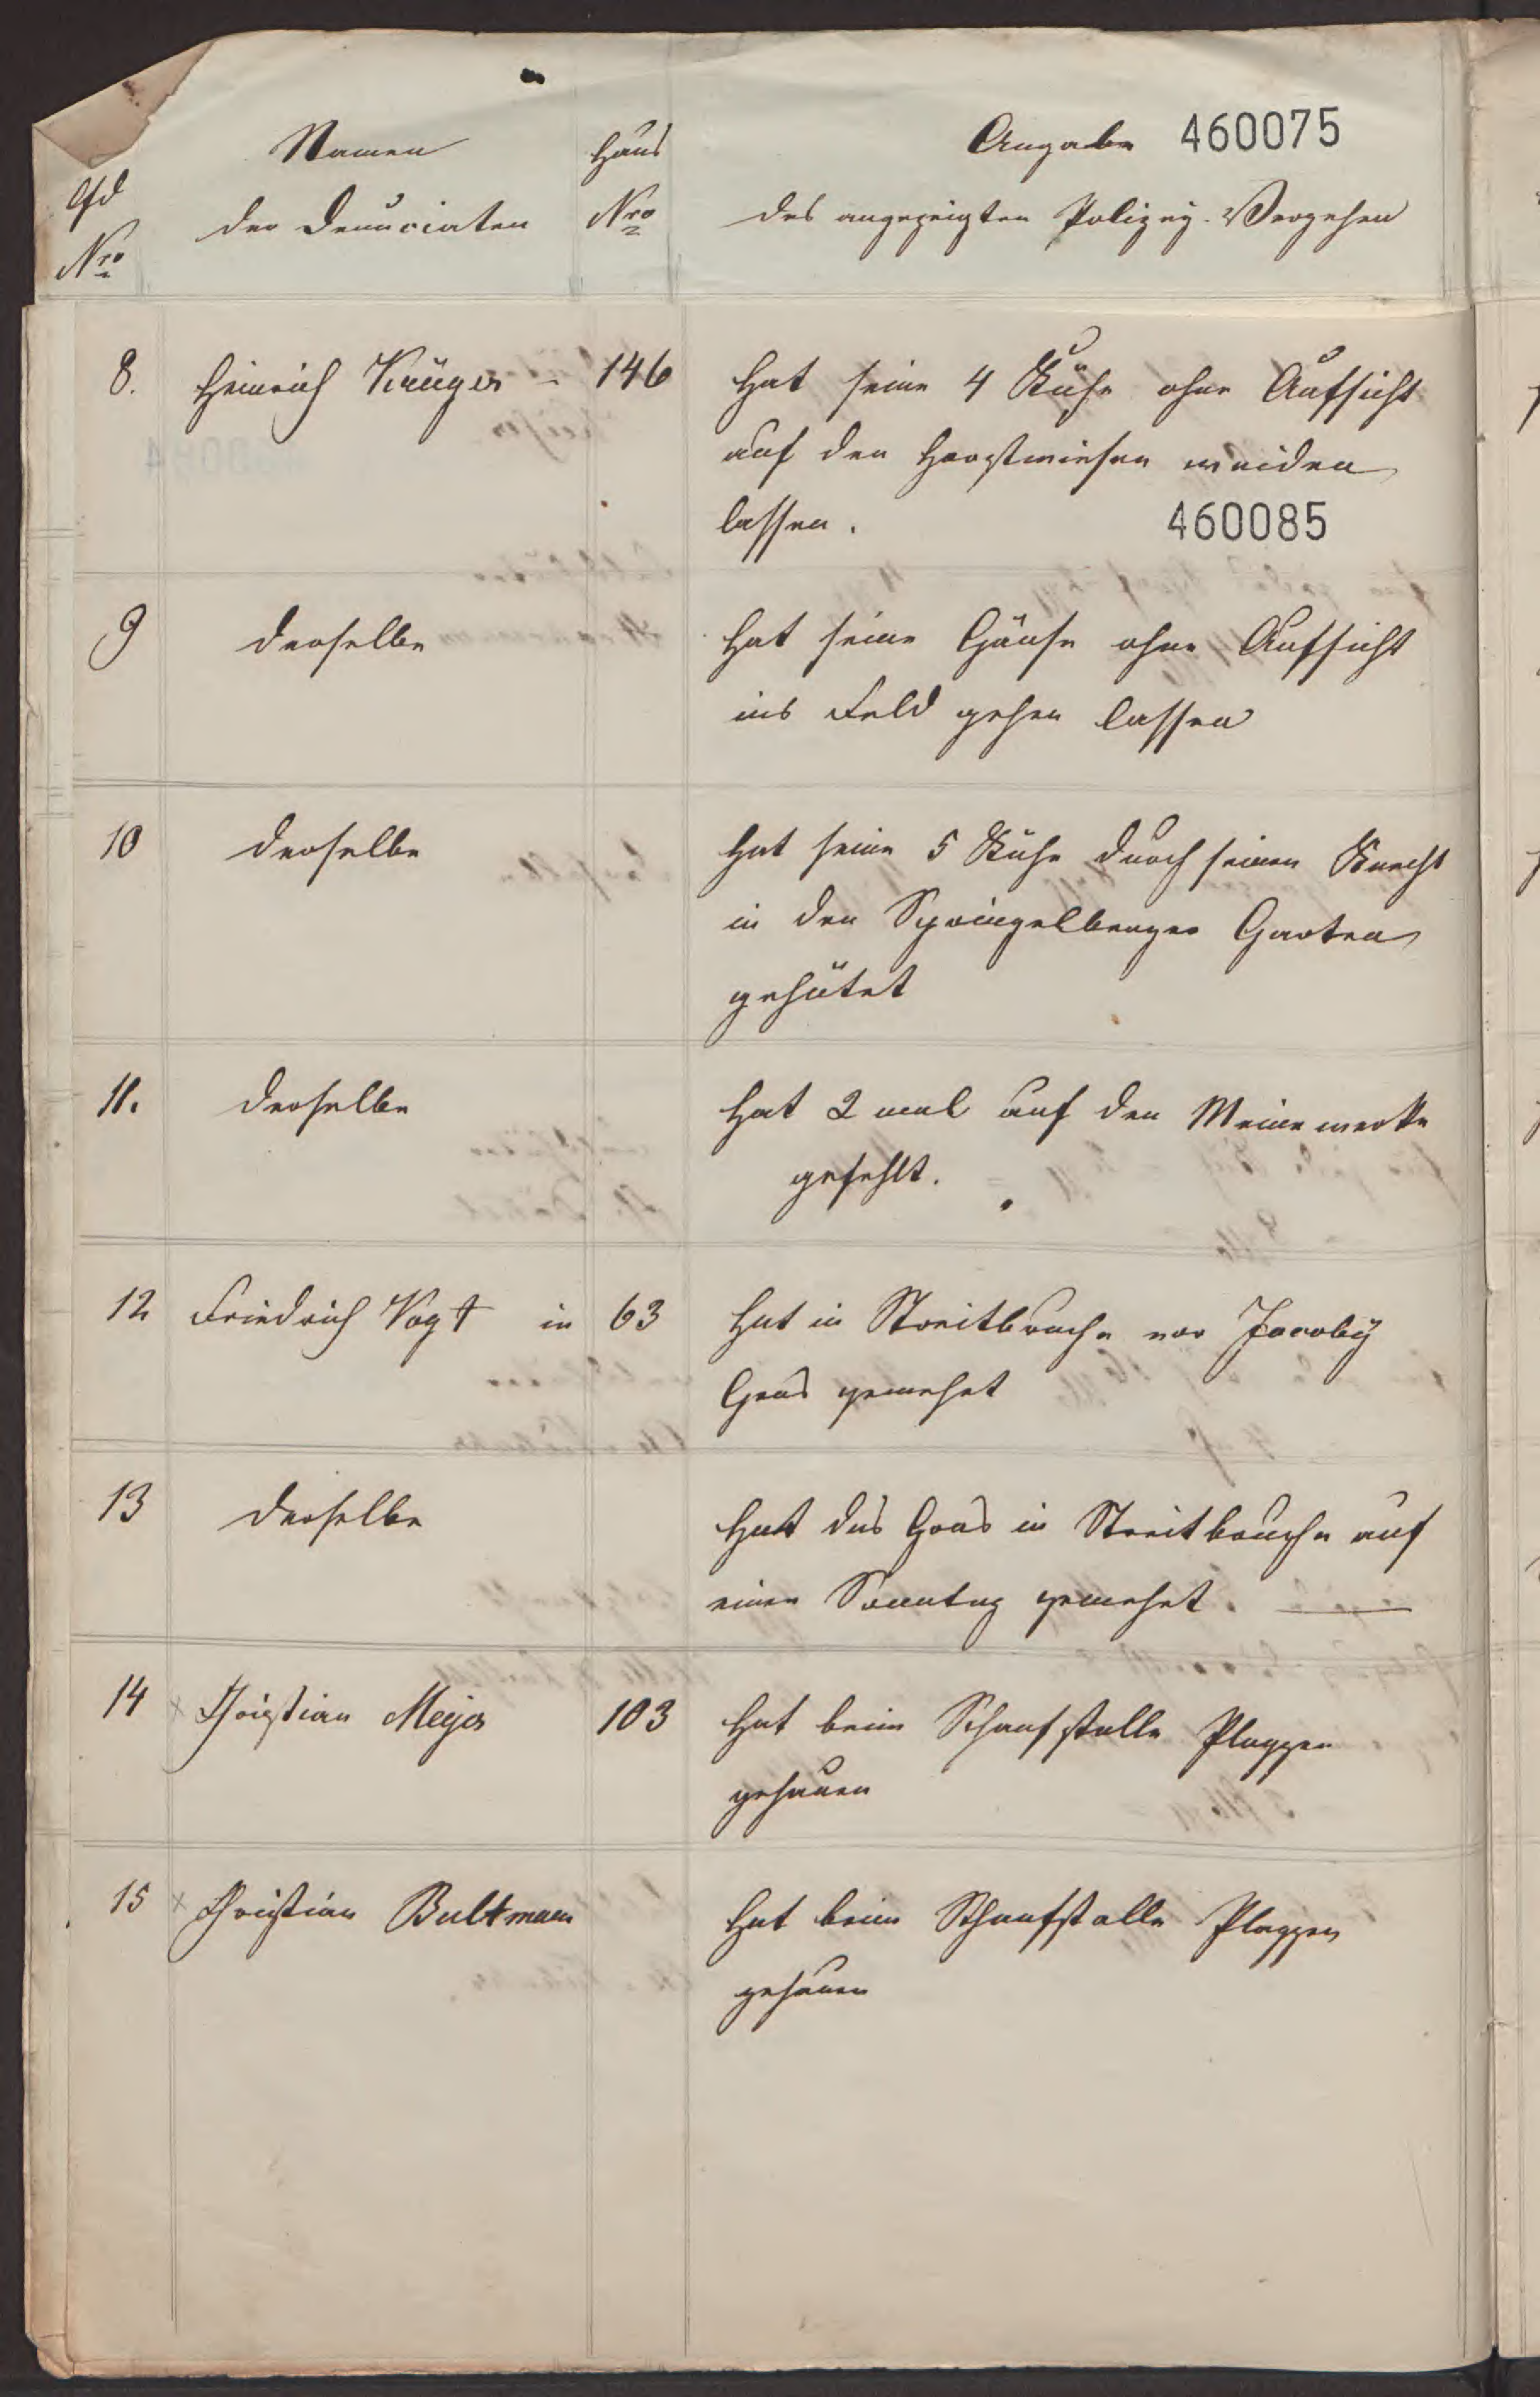 Namen
Haus
Angabe 460075
lfd
der Denunciaten
Nro
des angezeigten Polizey-Vergehen
Nro
8. Heinrich Krüger - 146 Hat seine 4 Kühe ohne Aufsicht
auf den Horstwiesen weiden
lassen.
460085
9 derselbe Hat seine Gänse ohne Aufsicht
ins Feld gehen lassen
10 derselbe Hat seine 5 Kühe durch seinen Knecht
in den Springelberger Garten
gehütet
11. derselbe Hat 2 mal auf den Meinewerke
gefehlt.
12 Friedrich Vogt in 63 Hat in Streitbruche vor Jacoby
Gras gemehet
13 derselbe Hat das Gras in Streitbruche auf
einen Sonntag gemehet.
14 Christian Meyer 103 Hat beim Schaafstalle Plaggen
gehauen
15 Christian Bultmann Hat beim Schaafstalle Plaggen
gehauen